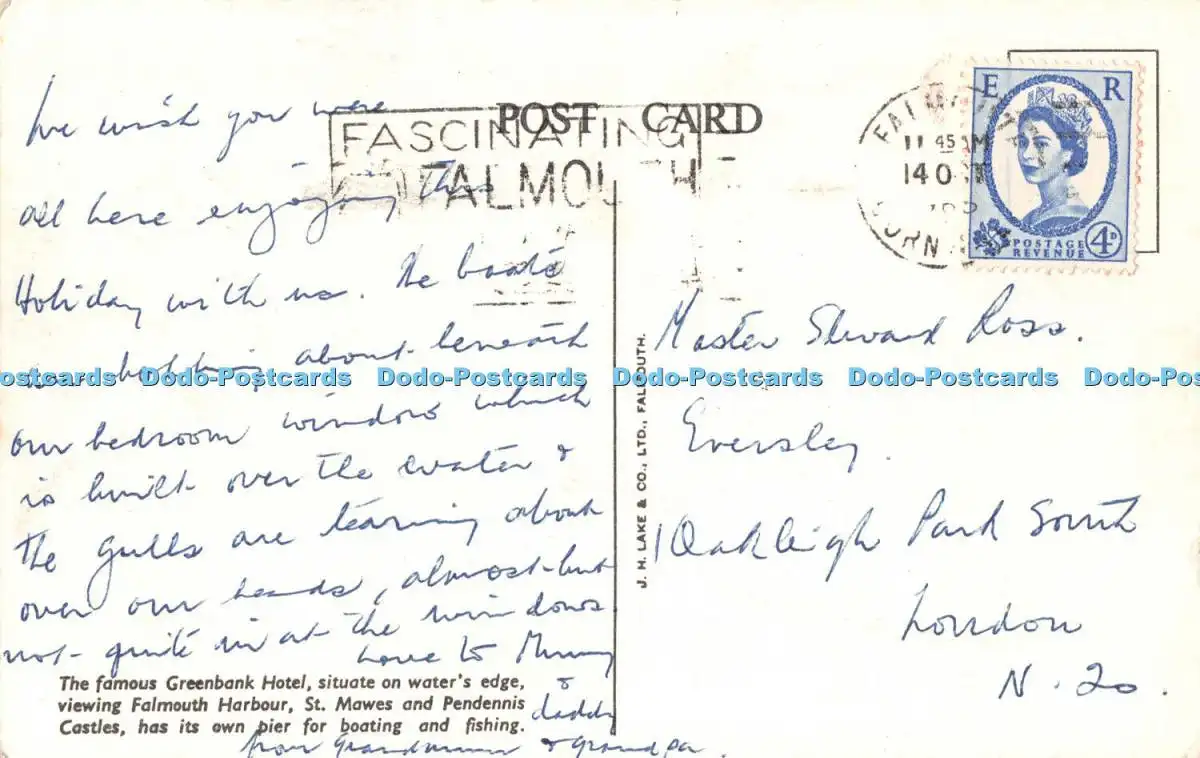 POST CARD
FASCINATING
FALMOUTH
FALMOUTH
11 45 AM
14 OCT
CORNWALL
E R
POSTAGE
REVENUE
4D
We wish you were
all here enjoying this
Holiday with us. The boats
are bobbing about beneath
our bedroom window which
is built over the water &
the gulls are tearing about
over our heads, almost but
not quite in at the windows
Love to Mummy
& daddy
from Grandmum & Grandpa.
The famous Greenbank Hotel, situate on water's edge,
viewing Falmouth Harbour, St. Mawes and Pendennis
Castles, has its own pier for boating and fishing.
J. H. LAKE & CO., LTD., FALMOUTH.
Master Ross.
Eversley.
1 Oakleigh Park South
London
N. 20.
Dodo-Postcards Dodo-Postcards Dodo-Postcards Dodo-Postcards Dodo-Postcards